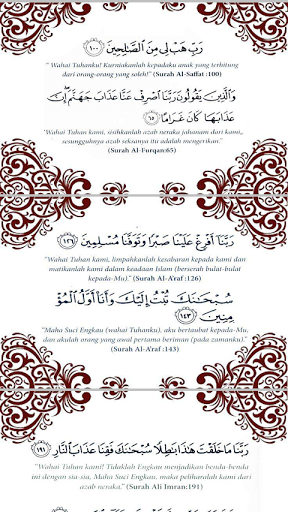 رَبِّ هَبْ لِى مِنَ ٱلصَّـٰلِحِينَ ١٠٠
"Wahai Tuhanku! Kurniakanlah kepadaku anak yang terhitung
dari orang-orang yang soleh!" (Surah Al-Saffat :100)
وَٱلَّذِينَ يَقُولُونَ رَبَّنَا ٱصْرِفْ عَنَّا عَذَابَ جَهَنَّمَ إِنَّ
عَذَابَهَا كَانَ غَرَامًا ٦٥
"Wahai Tuhan kami, sisihkanlah azab neraka jahanam dari kami,
sesungguhnya azab seksanya itu adalah mengerikan."
(Surah Al-Furqan:65)
رَبَّنَآ أَفْرِغْ عَلَيْنَا صَبْرًا وَتَوَفَّنَا مُسْلِمِينَ ١٢٦
"Wahai Tuhan kami, limpahkanlah kesabaran kepada kami dan
matikanlah kami dalam keadaan Islam (berserah bulat-bulat
kepada-Mu)." (Surah Al-A'raf :126)
سُبْحَـٰنَكَ تُبْتُ إِلَيْكَ وَأَنَا۠ أَوَّلُ ٱلْمُؤْ
مِنِينَ ١٤٣
"Maha Suci Engkau (wahai Tuhanku), aku bertaubat kepada-Mu,
dan akulah orang yang awal pertama beriman (pada zamanku)."
(Surah Al-A'raf :143)
رَبَّنَا مَا خَلَقْتَ هَـٰذَا بَـٰطِلًا سُبْحَـٰنَكَ فَقِنَا عَذَابَ ٱلنَّارِ ١٩١
"Wahai Tuhan kami! Tidaklah Engkau menjadikan benda-benda
ini dengan sia-sia, Maha Suci Engkau, maka peliharalah kami dari
azab neraka." (Surah Ali Imran:191)